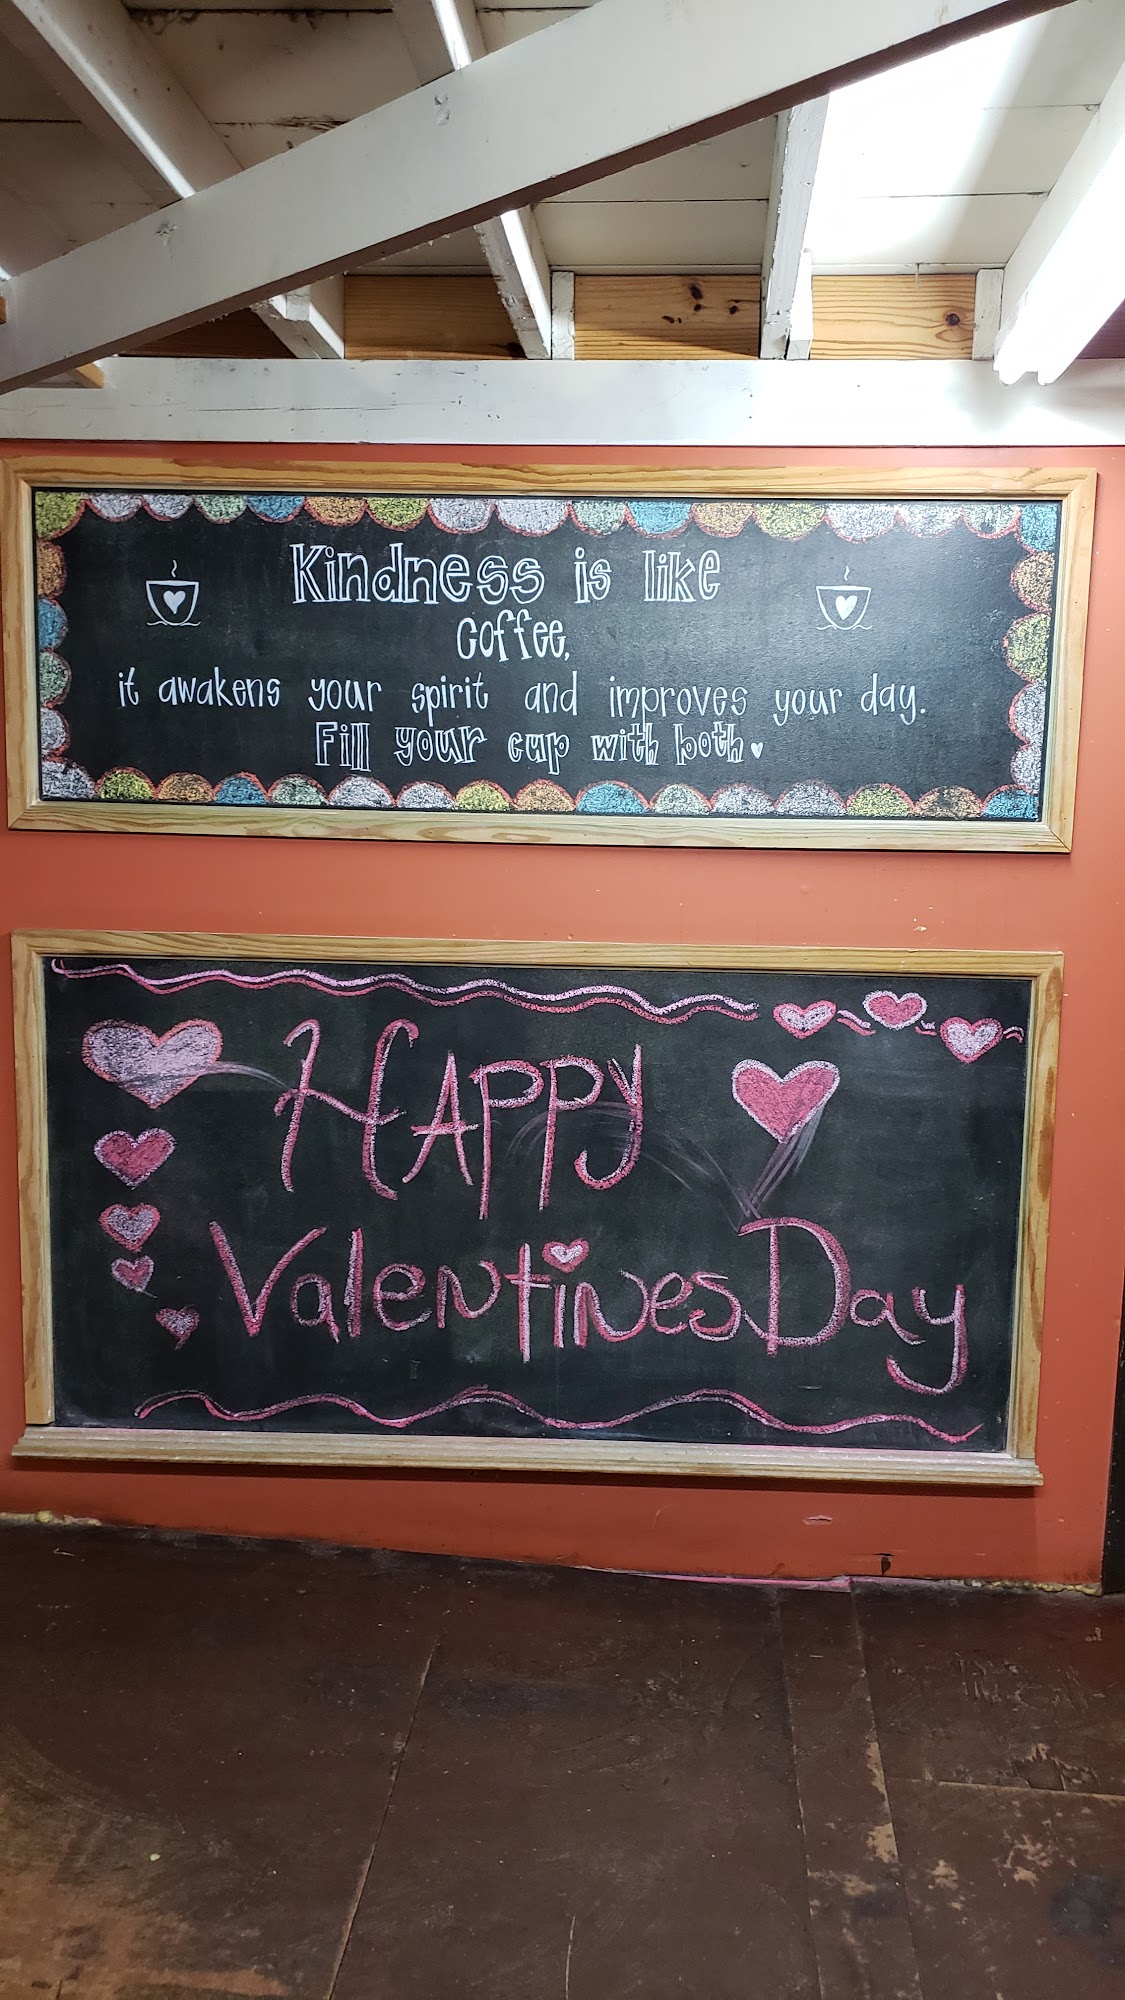 Kindness is like
coffee,
it awakens your spirit and improves your day.
Fill your cup with both
HAPPY
Valentines Day